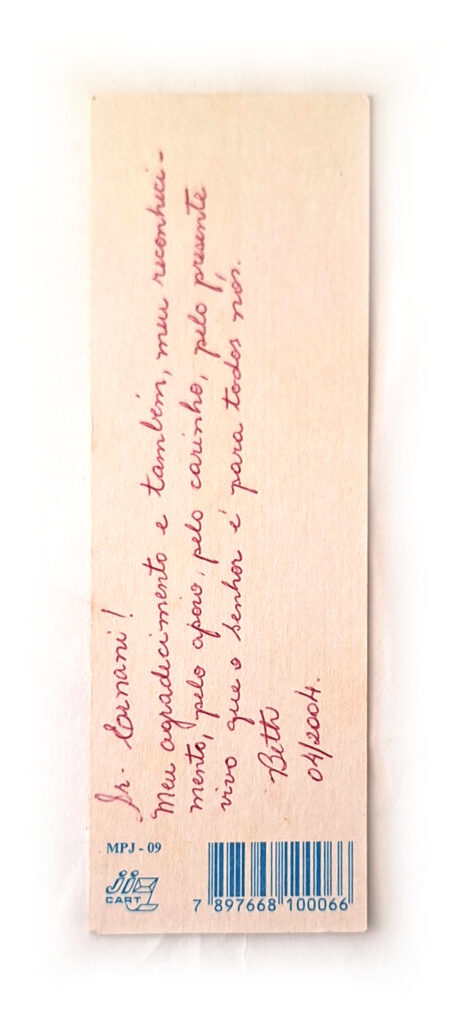 Sr. Ernani!
Meu agradecimento e também, meu reconheci-
mento, pelo apoio, pelo carinho, pelo presente
vivo que o senhor é para todos nós.
Beth
04/2004.
MPJ - 09
CART
7 897668 100066